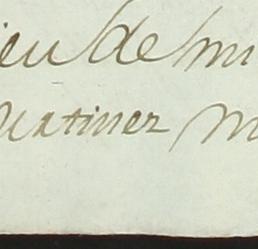 ieu de mi
uatinez m